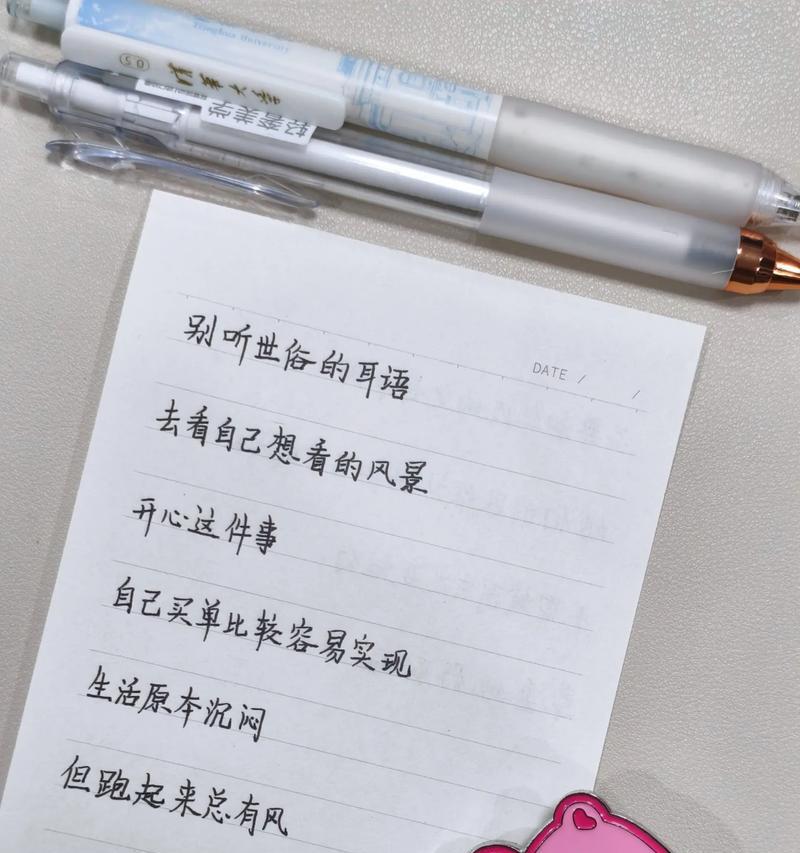 Tsinghua University
0.5
清華大学
轻奢美学
DATE / /
别听世俗的耳语
去看自己想看的风景
开心这件事
自己买单比较容易实现
生活原本沉闷
但跑起来总有风